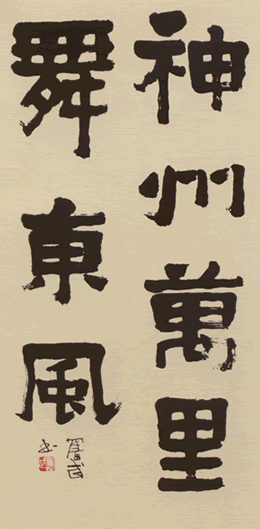 神州萬里
舞東風